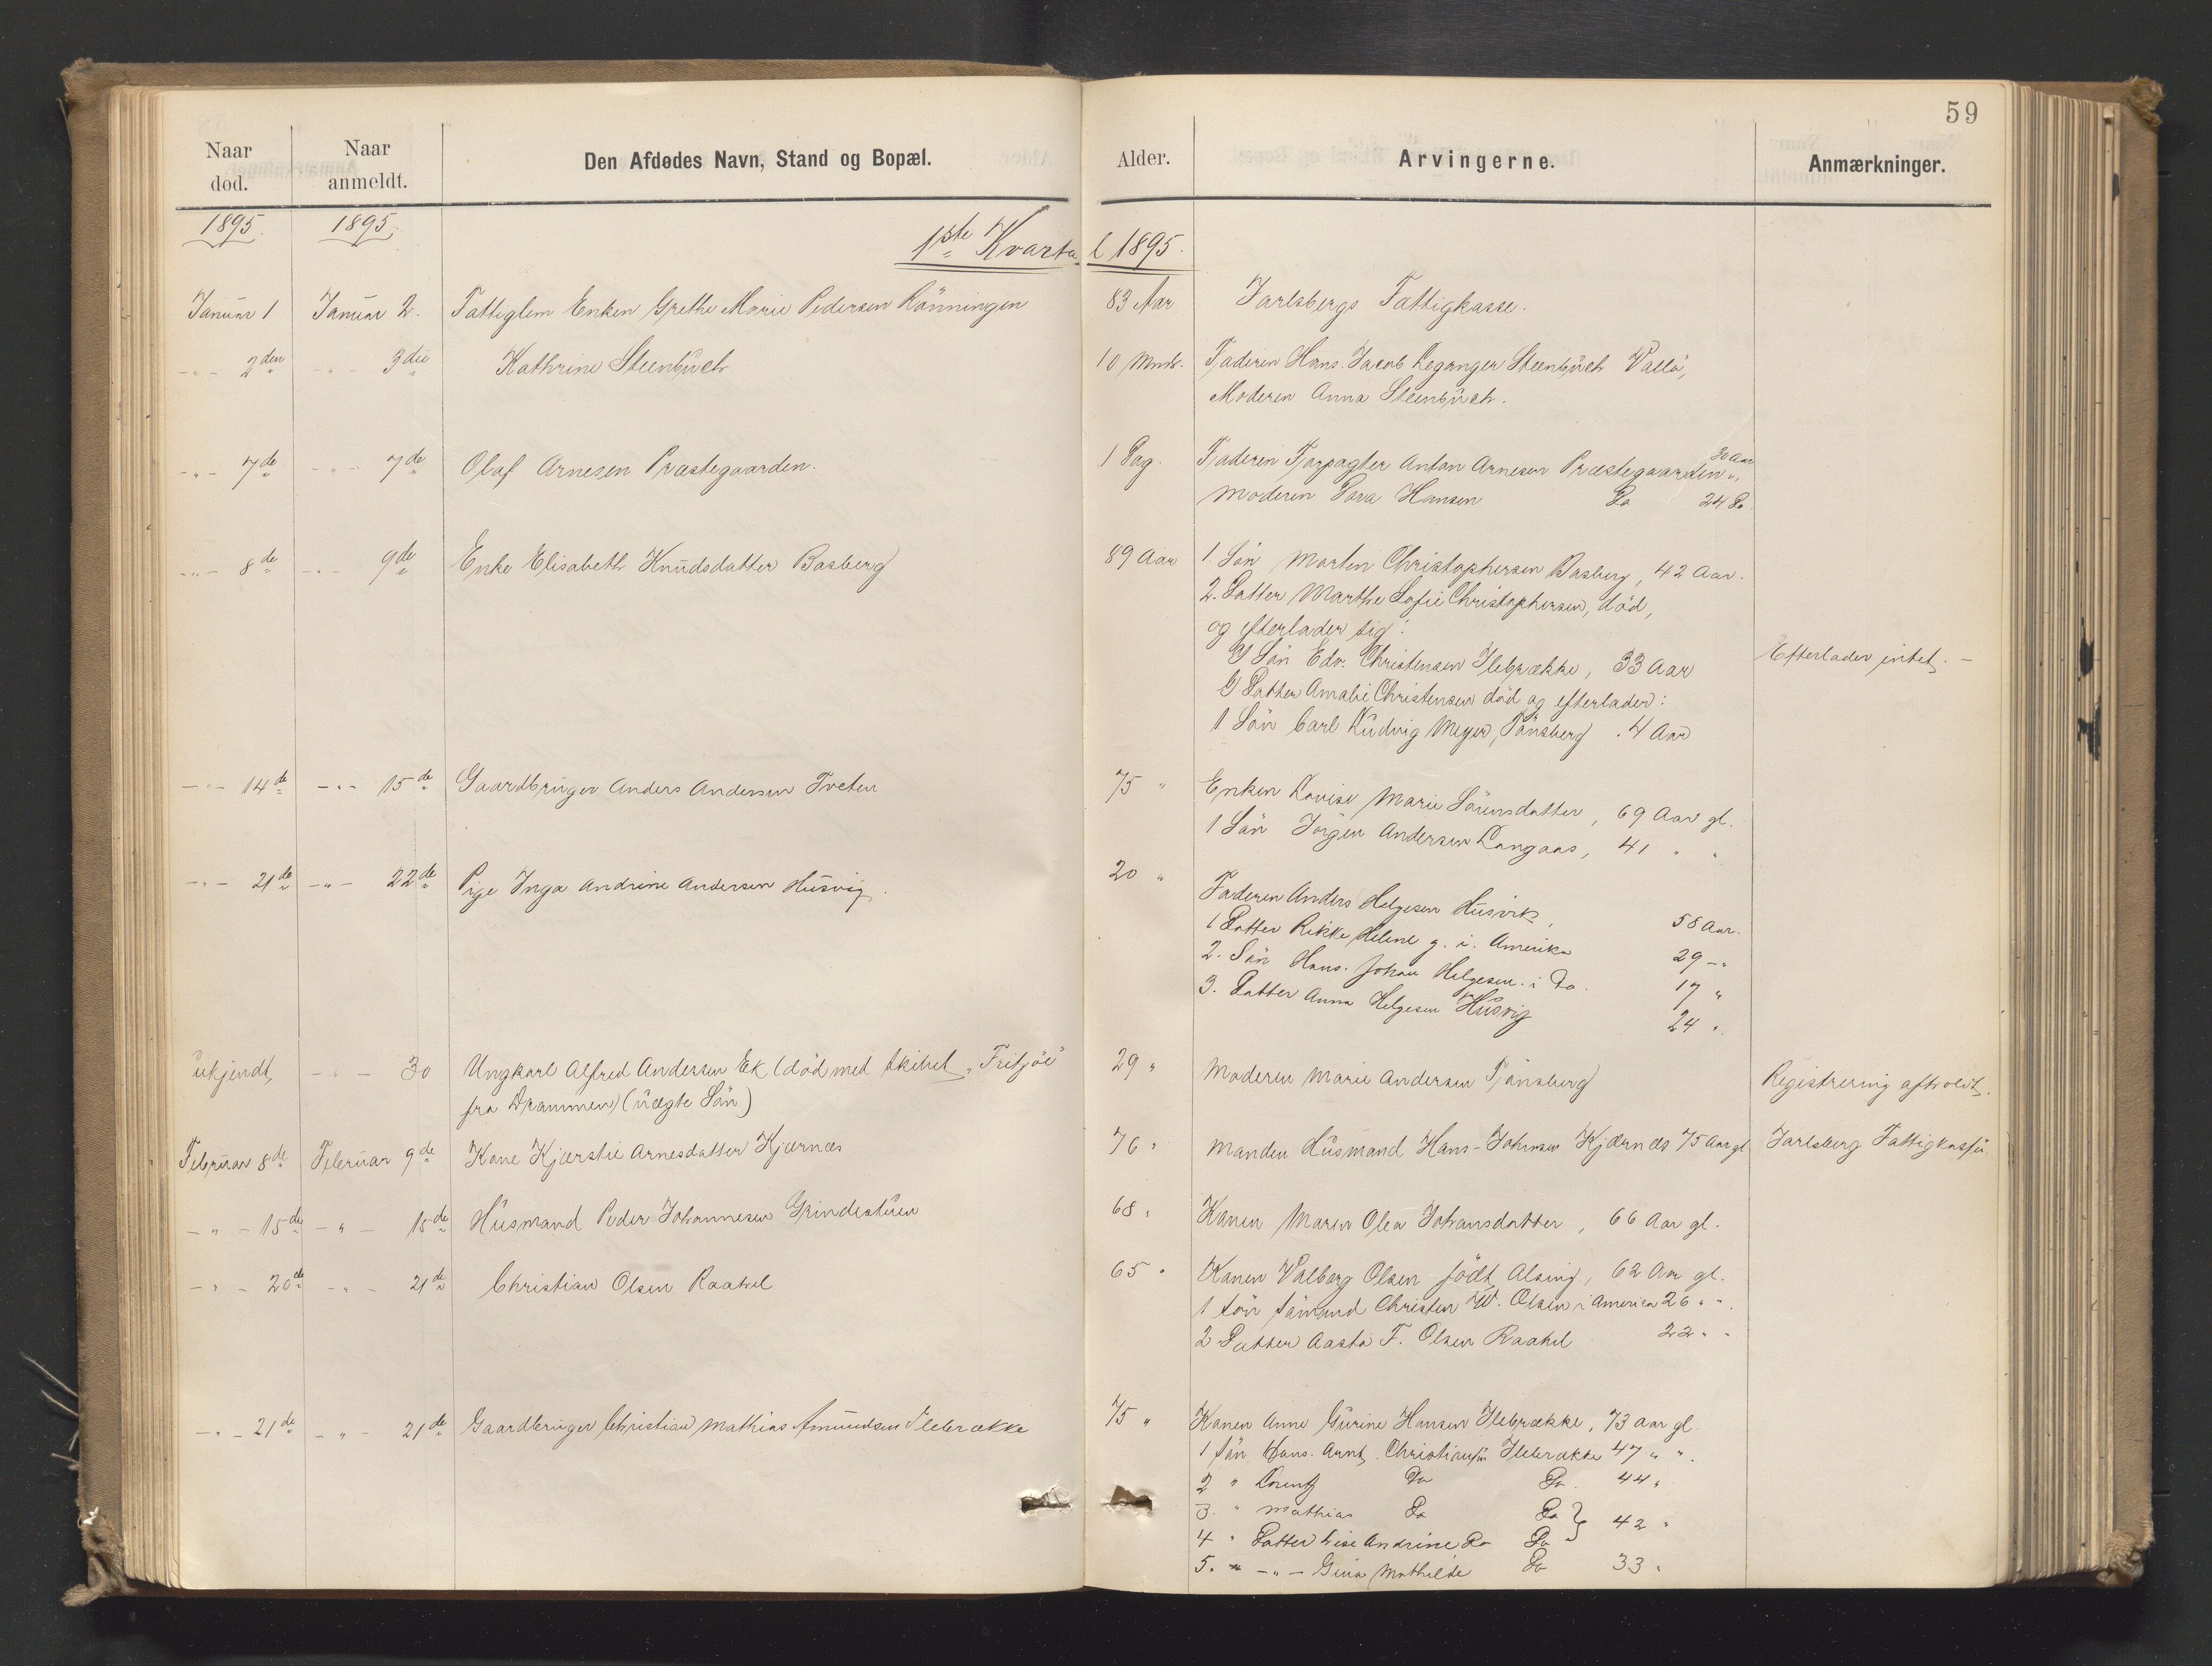 59
Naar død.
Naar anmeldt.
Den Afdødes Navn, Stand og Bopæl.
Alder.
Arvingerne.
Anmærkninger.
1895.
1895.
1ste Kvartal 1895.
Januar 1
Januar 2.
Fattiglem Enken Grethe Marie Pedersen Rönningen
83 Aar
Jarlsbergs Fattigkasse.
-„- 2den
-„- 3die
Kathrine Steenbuch
10 Mndr.
Faderen Hans Jacob Steenbuch Vallö,
Moderen Anna Steenbuch.
-„- 7de
-„- 7de
Olaf Arnesen Præstegaarden.
1 Dag.
Faderen Forpagter Anton Arnesen Præstegaarden 30 Aar
Moderen Hansen Do 24 Do.
-„- 8de
-„- 9de
Enke Elisabeth Knudsdatter Basberg
89 Aar
1 Sön Morten Christophersen Basberg, 42 Aar.
2. Datter Marthe Sofie Christophersen, död,
og efterlader sig:
Sön Edv. Christensen Ilebrække, 33 Aar
Datter Amalie Christensen död og efterlader:
1 Sön Carl Ludvig Meyer, Tönsberg. 4 Aar
Efterlader intet. –
-„- 14de
-„- 15de
Gaardbruger Anders Andersen Tveten
75 „
Enken Lovise Marie Sörensdatter, 69 Aar gl.
1 Sön Jörgen Andersen Langaas, 41 „ „
-„- 21de
-„- 22de
Pige Inga Andrine Andersen Husvig.
20 „
Faderen Anders Helgesen Husvik, 58 Aar.
1 Datter Rikke Helene g. i. Amerika 29 -„
2. Sön Hans Johan Helgesen. i Do. 17 „
3. Datter Anna Helgesen Husvig 24 „
ukjendt
-„- 30
Ungkarl Alfred Andersen Ek (död med skibet „Fritjöf"
fra Drammen) (uægte Sön)
29 „
Moderen Marie Andersen Tönsberg
Registrering afholdt.
Februar 8de
Februar 9de
Kone Kjærstie Arnesdatter Kjærnæs
76 „
Manden Husmand Hans Johnsen Kjærnæs 75 Aar gl
Jarlsberg Fattigkasse.
-„- 15de
-„- 15de
Husmand Peder Johannesen Grindestuen
68 „
Konen Maren Olea Johansdatter, 66 Aar gl.
-„- 20de
-„- 21de
Christian Olsen Raahel
65 „
Konen Valborg Olsen födt Alsing, 62 Aar gl.
1 sön sömand Christen W. Olsen i America 26 „ „
2 Datter Aasta F. Olsen Raahel 22 „ „
-„- 21de
-„- 21de
Gaardbruger Christian Mathias Amundsen Ilebrække
75 „
Konen Anne Gurine Hansen Ilebrække, 73 aar gl.
1 sön Hans Arnt Christiansen Ilebrække 47 „ „
2 „ Lorentz Do Do. 44 „
3. „ Mathias Do Do } 42 „
4 „ Datter Lise Andrine Do Do
5. „ -„- Gina Mathilde Do 33 „